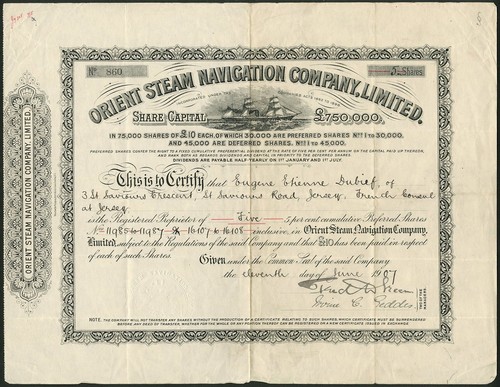 Nº 860
5 Shares
INCORPORATED UNDER THE COMPANIES ACTS
ORIENT STEAM NAVIGATION COMPANY, LIMITED.
SHARE CAPITAL £750,000,
IN 75,000 SHARES OF £10 EACH, OF WHICH 30,000 ARE PREFERRED SHARES Nos 1 TO 30,000,
AND 45,000 ARE DEFERRED SHARES. Nos 1 TO 45,000.
PREFERRED SHARES CONFER THE RIGHT TO A FIXED CUMULATIVE PREFERENTIAL DIVIDEND AT THE RATE OF FIVE PER CENT PER ANNUM ON THE CAPITAL PAID UP THEREON,
AND RANK BOTH AS REGARDS DIVIDENDS AND CAPITAL IN PRIORITY TO THE DEFERRED SHARES.
DIVIDENDS ARE PAYABLE HALF-YEARLY ON 1ST JANUARY AND 1ST JULY.
This is to Certify that Eugene Etienne Dubief, of
3 St Saviours Crescent, St Saviours Road, Jersey, French Consul
at Jersey
is the Registered Proprietor of Five 5 per cent cumulative Preferred Shares
Nº 11985 to 11987 & 16107 to 16108 inclusive, in Orient Steam Navigation Company,
Limited, subject to the Regulations of the said Company and that £10 has been paid in respect
of each of such Shares.
Given under the Common Seal of the said Company
the eleventh day of June 1907
NOTE. THE COMPANY WILL NOT TRANSFER ANY SHARES WITHOUT THE PRODUCTION OF A CERTIFICATE RELATING TO SUCH SHARES, WHICH CERTIFICATE MUST BE SURRENDERED
BEFORE ANY DEED OF TRANSFER, WHETHER FOR THE WHOLE OR ANY PORTION THEREOF CAN BE REGISTERED OR A NEW CERTIFICATE ISSUED IN EXCHANGE.
ORIENT STEAM NAVIGATION COMPANY, LIMITED.